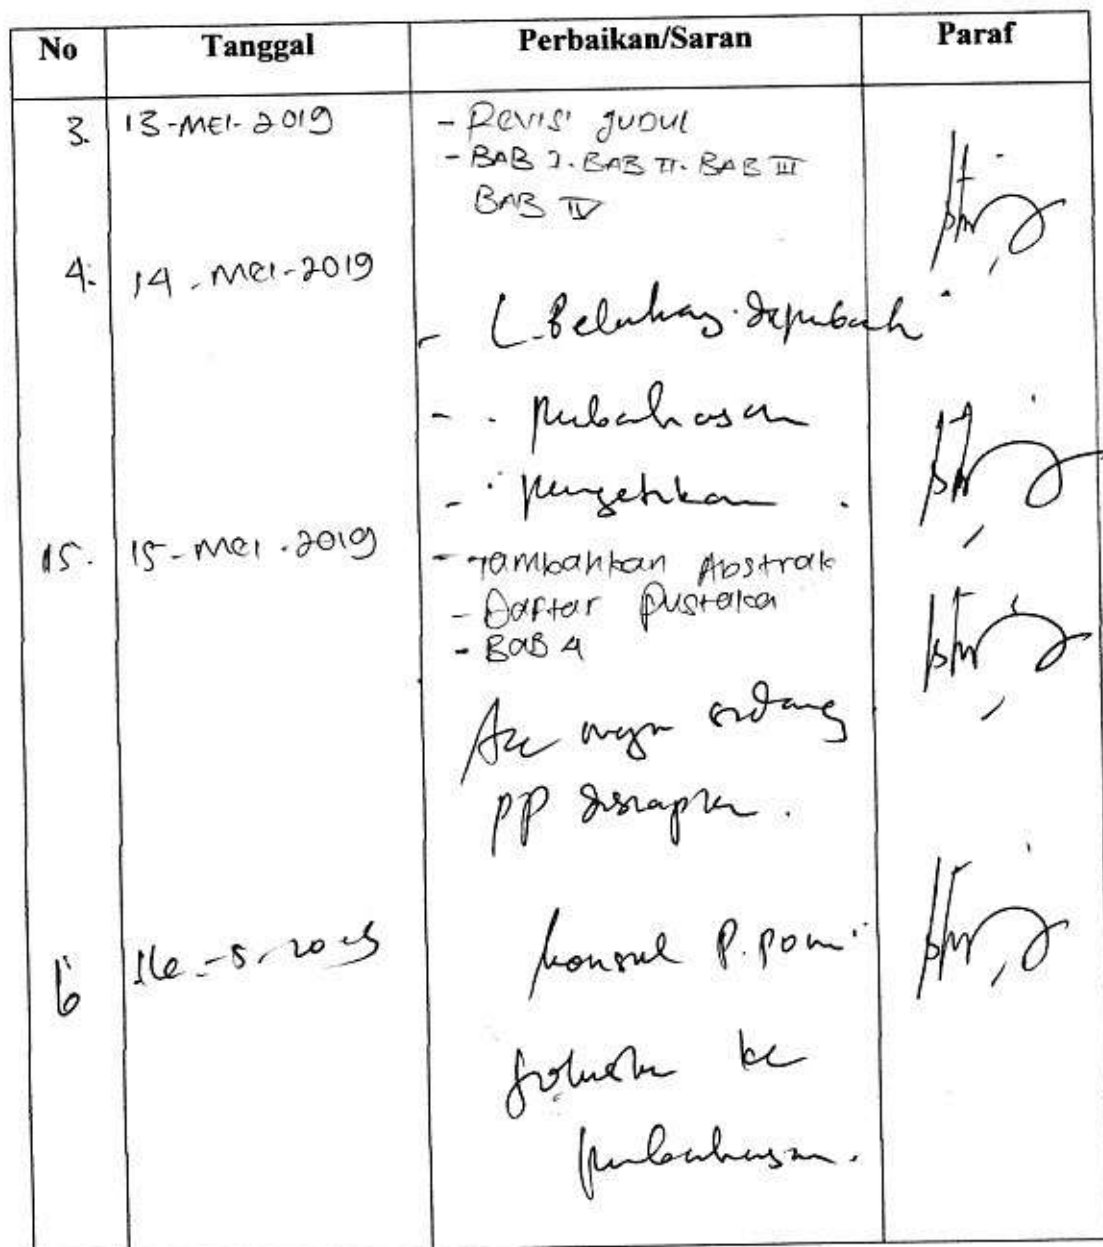 No Tanggal Perbaikan/Saran Paraf
3. 13-MEI-2019 - Revisi JUDUL
- BAB I. BAB II. BAB III
BAB IV
4. 14-Mei-2019
- L. Belakang diperbaiki
- pembahasan
- pengetikan.
15. 15-Mei-2019 - Tambahkan Abstrak
- Daftar Pustaka
- BAB 4
Acc sidang
PP disiapkan.
6 16-5-2019 konsul P.
ke
pembahasan.